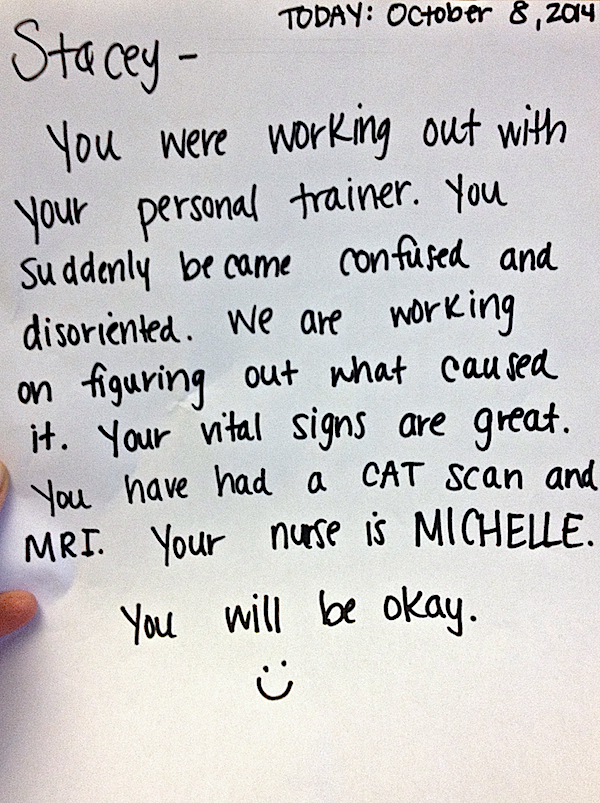 TODAY: October 8, 2014
Stacey -
You were working out with
your personal trainer. You
suddenly became confused and
disoriented. We are working
on figuring out what caused
it. Your vital signs are great.
You have had a CAT scan and
MRI. Your nurse is MICHELLE.
You will be okay.